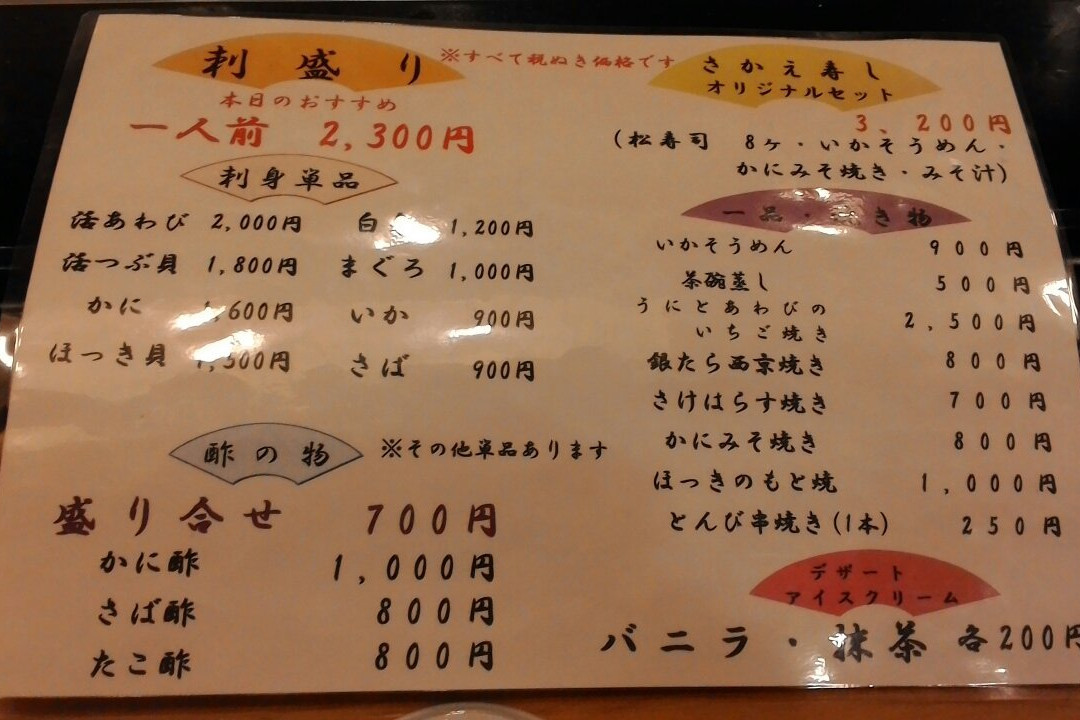 刺盛り
※すべて税ぬき価格です
本日のおすすめ
一人前 2,300円
刺身単品
活あわび 2,000円
活つぶ貝 1,800円
かに 1,600円
ほっき貝 1,500円
白 1,200円
まぐろ 1,000円
いか 900円
さば 900円
酢の物
※その他単品あります
盛り合せ 700円
かに酢 1,000円
さば酢 800円
たこ酢 800円
さかえ寿し
オリジナルセット
3,200円
(松寿司 8ヶ・いかそうめん・
かにみそ焼き・みそ汁)
一品・焼き物
いかそうめん 900円
茶碗蒸し 500円
うにとあわびの
いちご焼き 2,500円
銀たら西京焼き 800円
さけはらす焼き 700円
かにみそ焼き 800円
ほっきのもと焼 1,000円
とんび串焼き(1本) 250円
デザート
アイスクリーム
バニラ・抹茶 各200円